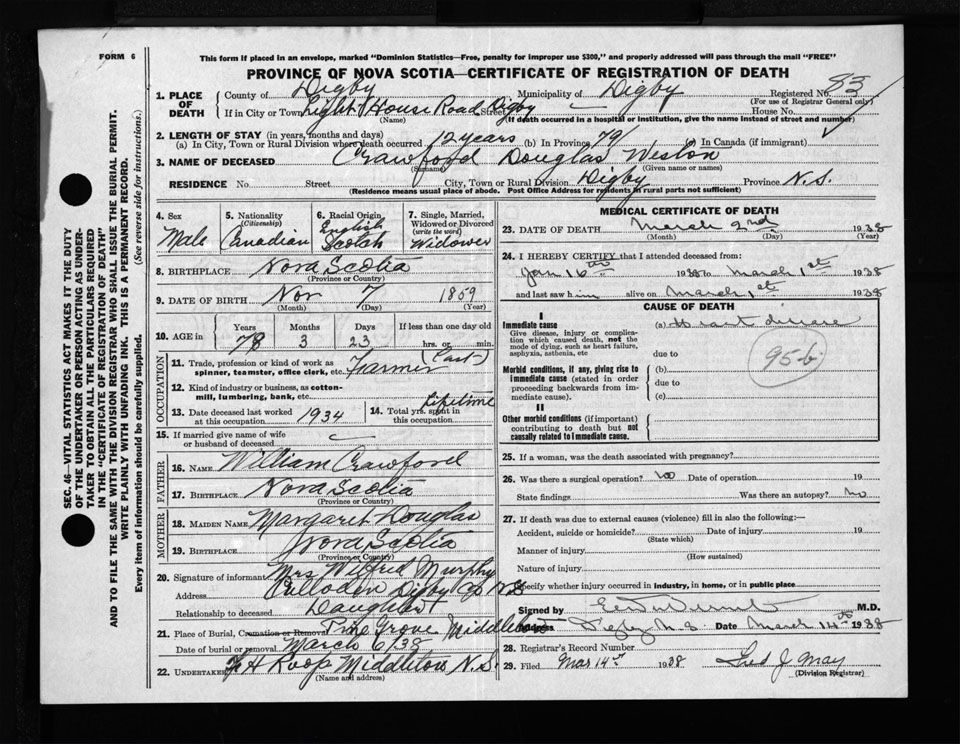 FORM 6
This form if placed in an envelope, marked "Dominion Statistics—Free, penalty for improper use $300," and properly addressed will pass through the mail "FREE"
PROVINCE OF NOVA SCOTIA—CERTIFICATE OF REGISTRATION OF DEATH
SEC. 46—VITAL STATISTICS ACT MAKES IT THE DUTY
OF THE UNDERTAKER OR PERSON ACTING AS UNDER-
TAKER TO OBTAIN ALL THE PARTICULARS REQUIRED
IN THE "CERTIFICATE OF REGISTRATION OF DEATH"
AND TO FILE THE SAME WITH THE DIVISION REGISTRAR WHO SHALL ISSUE THE BURIAL PERMIT.
WRITE PLAINLY WITH UNFADING INK. THIS IS A PERMANENT RECORD.
Every item of information should be carefully supplied. (See reverse side for instructions.)
1. PLACE OF DEATH
County of Digby Municipality of Digby Registered No. 83
(For use of Registrar General only)
If in City or Town Light House Road Digby Street House No.
(Name) (If death occurred in a hospital or institution, give the name instead of street and number)
2. LENGTH OF STAY (in years, months and days)
(a) In City, Town or Rural Division where death occurred 12 years (b) In Province 79 (c) In Canada (if immigrant)
3. NAME OF DECEASED Crawford Douglas Weston
(Surname) (Given name or names)
RESIDENCE No. Street City, Town or Rural Division Digby Province N.S.
(Residence means usual place of abode. Post Office Address for residents in rural parts not sufficient)
4. Sex Male
5. Nationality (Citizenship) Canadian
6. Racial Origin English Scotch
7. Single, Married, Widowed or Divorced (write the word) Widower
8. BIRTHPLACE Nova Scotia
(Province or Country)
9. DATE OF BIRTH Nov 7 1859
(Month) (Day) (Year)
10. AGE in Years Months Days If less than one day old
78 3 23 hrs. or min.
OCCUPATION
11. Trade, profession or kind of work as spinner, teamster, office clerk, etc. Farmer (Past)
12. Kind of industry or business, as cotton-mill, lumbering, bank, etc.
13. Date deceased last worked at this occupation 1934
14. Total yrs. spent in this occupation Lifetime
15. If married give name of wife or husband of deceased
FATHER
16. NAME William Crawford
17. BIRTHPLACE Nova Scotia
(Province or Country)
MOTHER
18. MAIDEN NAME Margaret Douglas
19. BIRTHPLACE Nova Scotia
(Province or Country)
20. Signature of informant Mrs Wilfred Murphy
Address Culloden Digby Co N.S.
Relationship to deceased Daughter
21. Place of Burial, Cremation or Removal Pine Grove Middleton
Date of burial or removal March 6/38
22. UNDERTAKER H Roop Middleton N.S.
(Name and address)
MEDICAL CERTIFICATE OF DEATH
23. DATE OF DEATH March 2nd 1938
(Month) (Day) (Year)
24. I HEREBY CERTIFY that I attended deceased from:
Jan 16th 1938 to March 1st 1938
and last saw him alive on March 1st 1938
CAUSE OF DEATH
I
Immediate cause (a) Heart disease
Give disease, injury or complica-
tion which caused death, not the
mode of dying, such as heart failure,
asphyxia, asthenia, etc
due to
95-b
Morbid conditions, if any, giving rise to (b)
immediate cause (stated in order due to
proceeding backwards from im-
mediate cause). (c)
II
Other morbid conditions (if important)
contributing to death but not
causally related to immediate cause.
25. If a woman, was the death associated with pregnancy?
26. Was there a surgical operation? no Date of operation 19
State findings Was there an autopsy? no
27. If death was due to external causes (violence) fill in also the following:—
Accident, suicide or homicide? Date of injury 19
(State which)
Manner of injury
(How sustained)
Nature of injury
Specify whether injury occurred in industry, in home, or in public place
Signed by M.D.
Address Digby N.S. Date March 14th 1938
28. Registrar's Record Number
29. Filed Mar 14th 1938 Fred J May
(Division Registrar)